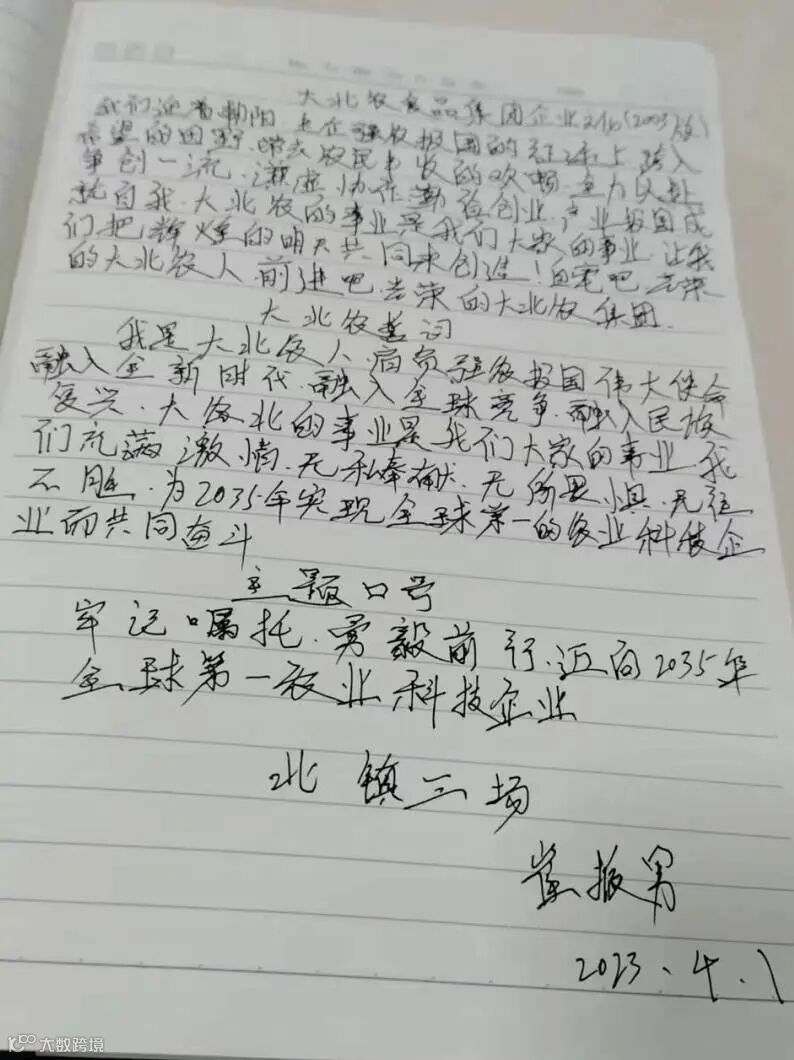 大北农食品集团企业文化(2023版)
我们迎着朝阳,在企强农报国的征途上,踏入
希望的田野, 农民丰收的欢畅.全力以赴
争创一流.谦虚协作勤奋创业.产业报国成
就自我.大北农的事业是我们大家的事业.让我
们把辉煌的明天共同来创造!自豪吧.光荣
的大北农人.前进吧.光荣的大北农集团.
大北农誓词
我是大北农人.肩负强农报国伟大使命
融入全新时代.融入全球竞争.融入民族
复兴.大农北的事业是我们大家的事业.我
们充满激情.无私奉献.无所畏惧.无往
不胜.为2035年实现全球第一的农业科技企
业而共同奋斗
主题口号
牢记嘱托.勇毅前行.迈向2035年
全球第一农业科技企业
北镇三场
崔振男
2023.4.1
大数跨境